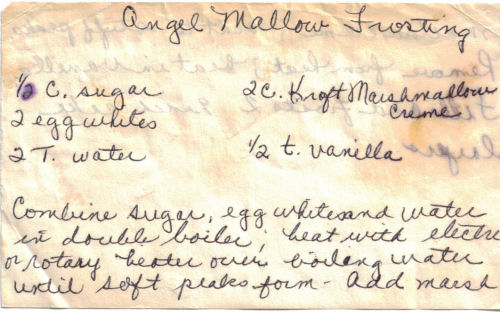 Angel Mallow Frosting
1/2 C. sugar 2 C. Kraft Marshmallow Creme
2 egg whites
2 T. water 1/2 t. vanilla
Combine sugar, egg whites and water
in double boiler; beat with electric
or rotary beater over boiling water
until soft peaks form - add marsh